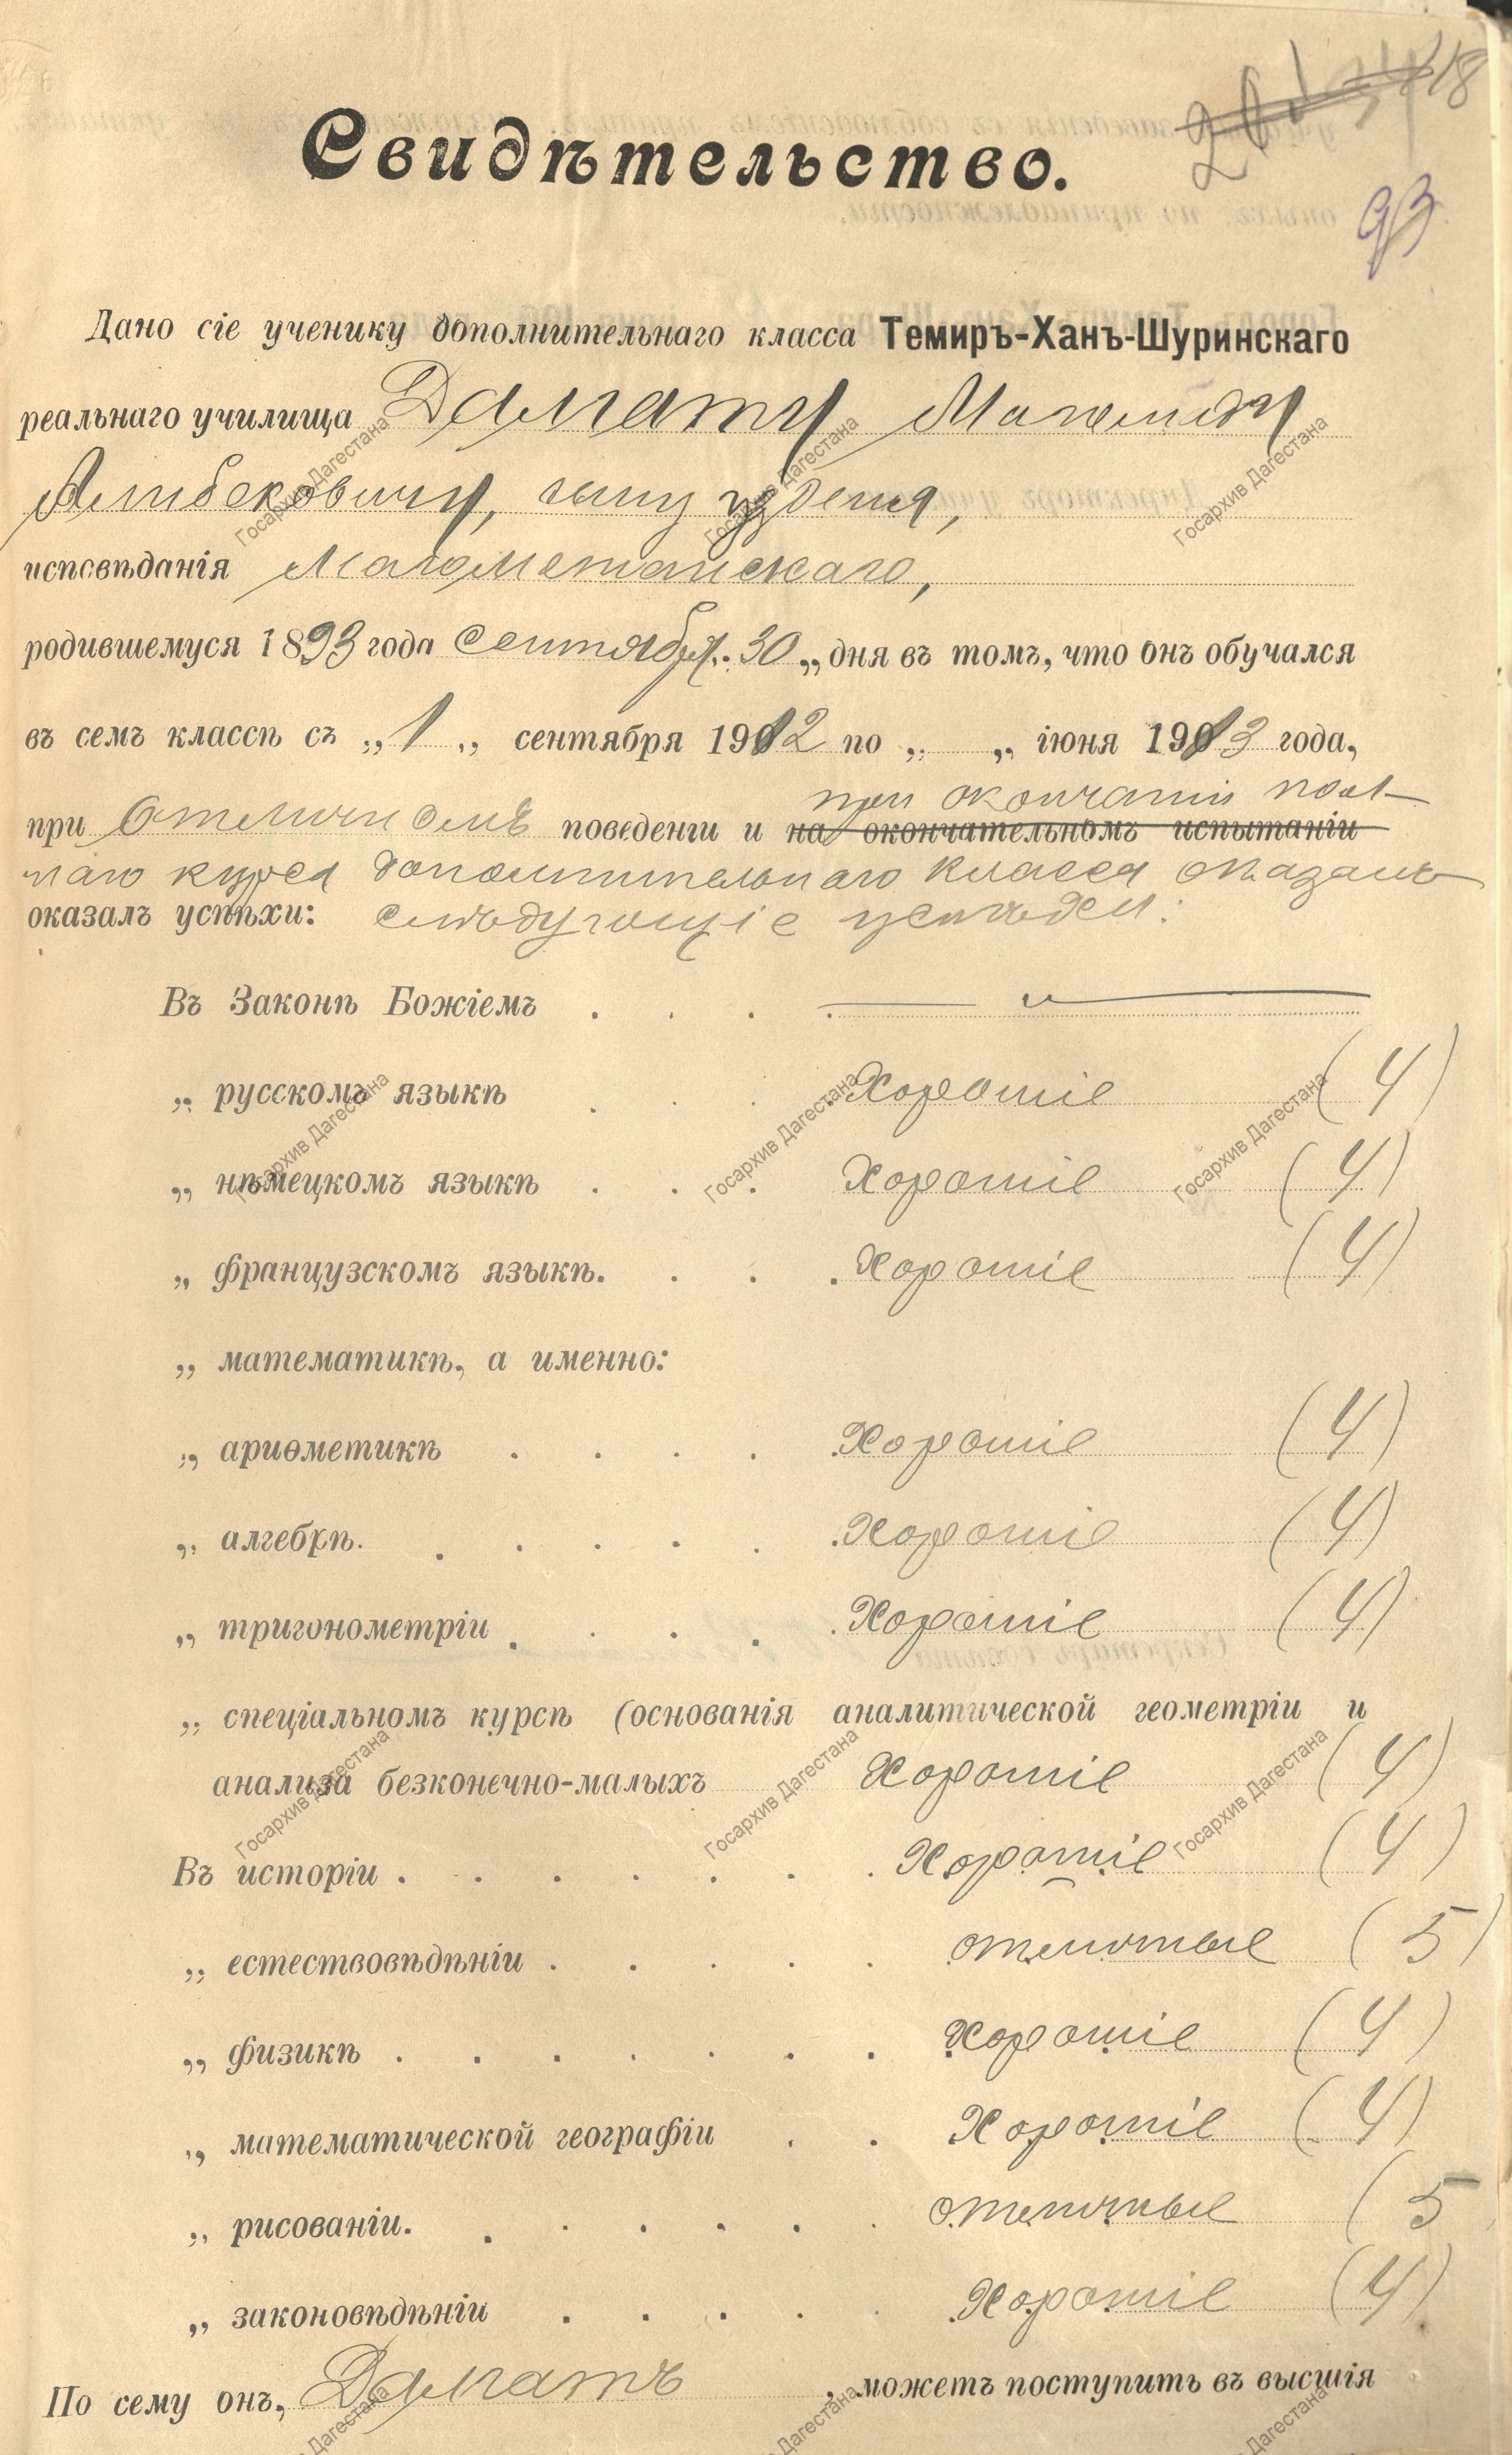 18
Свидѣтельство.
93
Дано сіе ученику дополнительнаго класса Темиръ-Ханъ-Шуринскаго
реальнаго училища Далгату Магомеду
Алибековичу, сыну узденя,
исповѣданія Магометанскаго,
родившемуся 1893 года сентября 30 „ дня въ томъ, что онъ обучался
въ семъ классѣ съ „ 1 „ сентября 1912 по „ „ іюня 1913 года,
при окончаніи пол-
при отличномъ поведеніи и на окончательномъ испытаніи
наго курса дополнительнаго класса оказалъ
оказалъ успѣхи: слѣдующіе успѣхи:
Въ Законѣ Божіемъ . . . .
„ русскомъ языкѣ . . . . Хорошіе (4)
„ нѣмецкомъ языкѣ . . . Хорошіе (4)
„ французскомъ языкѣ. . . . Хорошіе (4)
„ математикѣ, а именно:
„ ариѳметикѣ . . . . . Хорошіе (4)
„ алгебрѣ. . . . . . . Хорошіе (4)
„ тригонометріи . . . . . Хорошіе (4)
„ спеціальномъ курсѣ (основанія аналитической геометріи и
анализа безконечно-малыхъ Хорошіе (4)
Въ исторіи . . . . . . . Хорошіе (4)
„ естествовѣдѣніи . . . . . отличные (5)
„ физикѣ . . . . . . . . Хорошіе (4)
„ математической географіи . . Хорошіе (4)
„ рисованіи. . . . . . . отличные (5
„ законовѣдѣніи . . . . . Хорошіе (4)
По сему онъ, Далгатъ , можетъ поступить въ высшія
Госархив Дагестана
Госархив Дагестана
Госархив Дагестана
Госархив Дагестана
Госархив Дагестана
Госархив Дагестана
Госархив Дагестана
Госархив Дагестана
Госархив Дагестана
Дагестана
Дагестана
Дагестана